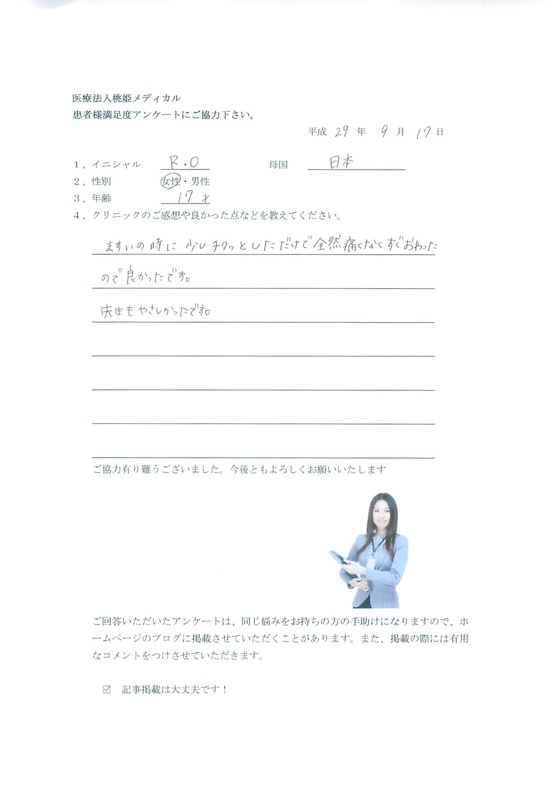 医療法人桃姫メディカル
患者様満足度アンケートにご協力下さい。
平成 29 年 9 月 17 日
1、イニシャル R・O 母国 日本
2、性別 女性・男性
3、年齢 17才
4、クリニックのご感想や良かった点などを教えてください。
ますいの時に少しチクッとしただけで全然痛くなくすぐおわった
ので良かったです。
先生もやさしかったです。
ご協力有り難うございました。今後ともよろしくお願いいたします
ご回答いただいたアンケートは、同じ悩みをお持ちの方の手助けになりますので、ホ
ームページのブログに掲載させていただくことがあります。また、掲載の際には有用
なコメントをつけさせていただきます。
☑ 記事掲載は大丈夫です！